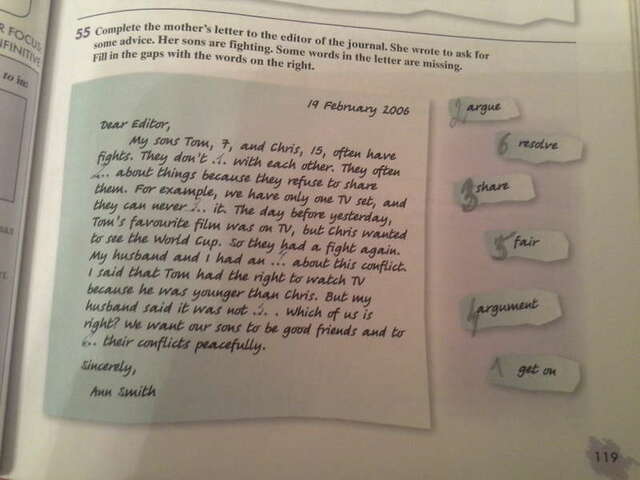 R FOCUS
NFINITIVE
to in:
55 Complete the mother's letter to the editor of the journal. She wrote to ask for
some advice. Her sons are fighting. Some words in the letter are missing.
Fill in the gaps with the words on the right.
19 February 2006
Dear Editor,
My sons Tom, 7, and Chris, 15, often have
fights. They don't .1. with each other. They often
.2.. about things because they refuse to share
them. For example, we have only one TV set, and
they can never .3.. it. The day before yesterday,
Tom's favourite film was on TV, but Chris wanted
to see the World Cup. So they had a fight again.
My husband and I had an .4.. about this conflict.
I said that Tom had the right to watch TV
because he was younger than Chris. But my
husband said it was not .5. . Which of us is
right? We want our sons to be good friends and to
6.. their conflicts peacefully.
Sincerely,
Ann Smith
2 argue
6 resolve
3 share
5 fair
4 argument
1 get on
119